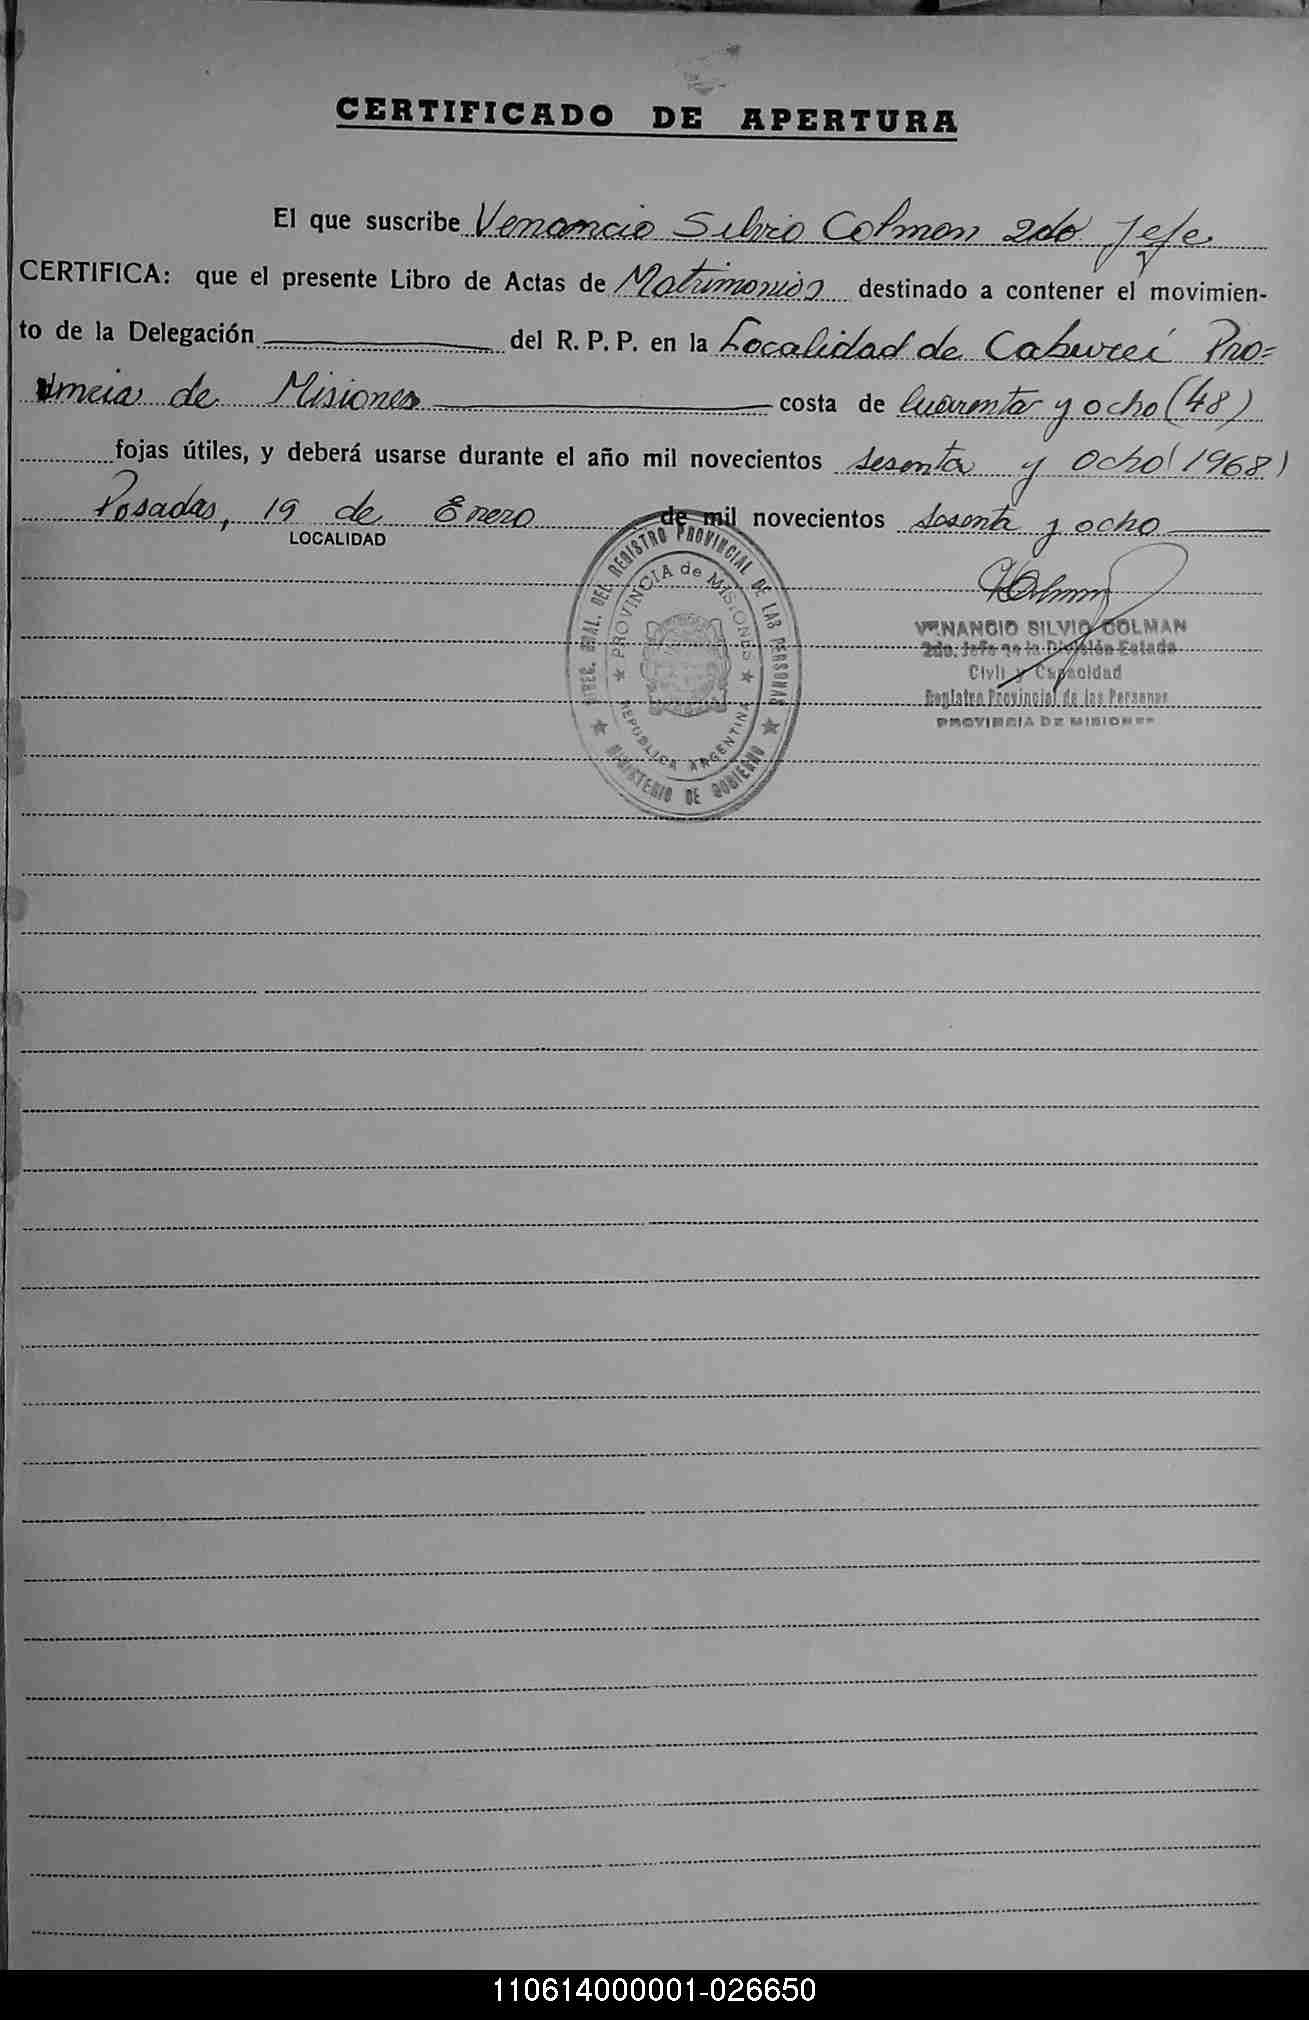 CERTIFICADO DE APERTURA
El que suscribe Venancio Silvio Colman 2do Jefe
CERTIFICA: que el presente Libro de Actas de Matrimonios destinado a contener el movimien-
to de la Delegación del R. P. P. en la Localidad de Caburei Pro=
vincia de Misiones costa de cuarenta y ocho (48)
fojas útiles, y deberá usarse durante el año mil novecientos sesenta y ocho (1968)
Posadas, 19 de Enero de mil novecientos sesenta y ocho
LOCALIDAD
DIREC. GRAL. DEL REGISTRO PROVINCIAL DE LAS PERSONAS
PROVINCIA de MISIONES
REPUBLICA ARGENTINA
MINISTERIO DE GOBIERNO
Colman
VENANCIO SILVIO COLMAN
2do. Jefe de la División Estado
Civil y Capacidad
Registro Provincial de las Personas
PROVINCIA DE MISIONES
110614000001-026650